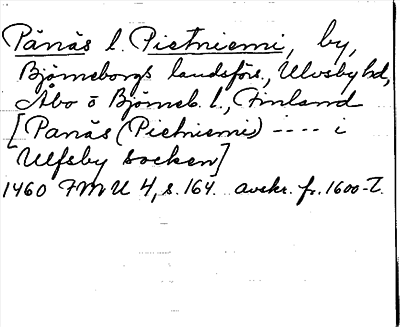 Pänäs l. Pietniemi, by,
Björneborgs landsförs., Ulvsby hd,
Åbo o Björneb. l., Finland
[Panäs (Pietniemis) ---- i
Ulfsby socken]
1460 FMU 4, s. 164. avskr. fr. 1600-t.